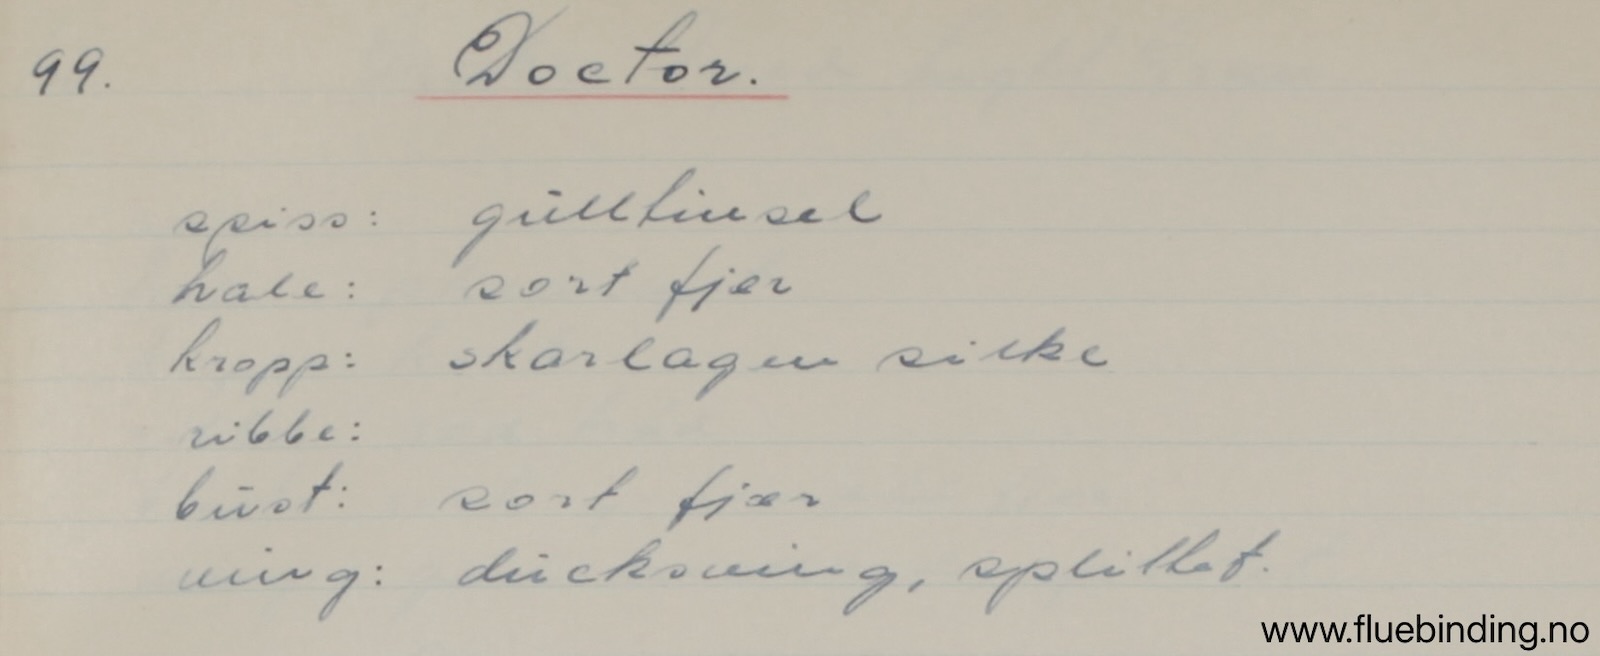 99. Doctor.
spiss: gulltinsel
hale: sort fjær
kropp: skarlagen silke
ribbe:
bust: sort fjær
ving: duckswing, splittet.
www.fluebinding.no